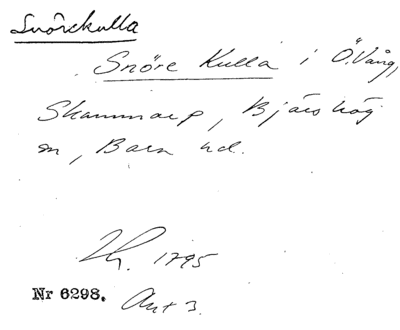 Snörekulla
Snöre Kulla i Ö. Vång,
Skammarp, Bjäreshög
sn, Bara hd.
1795
Nr 6298. Akt 3.